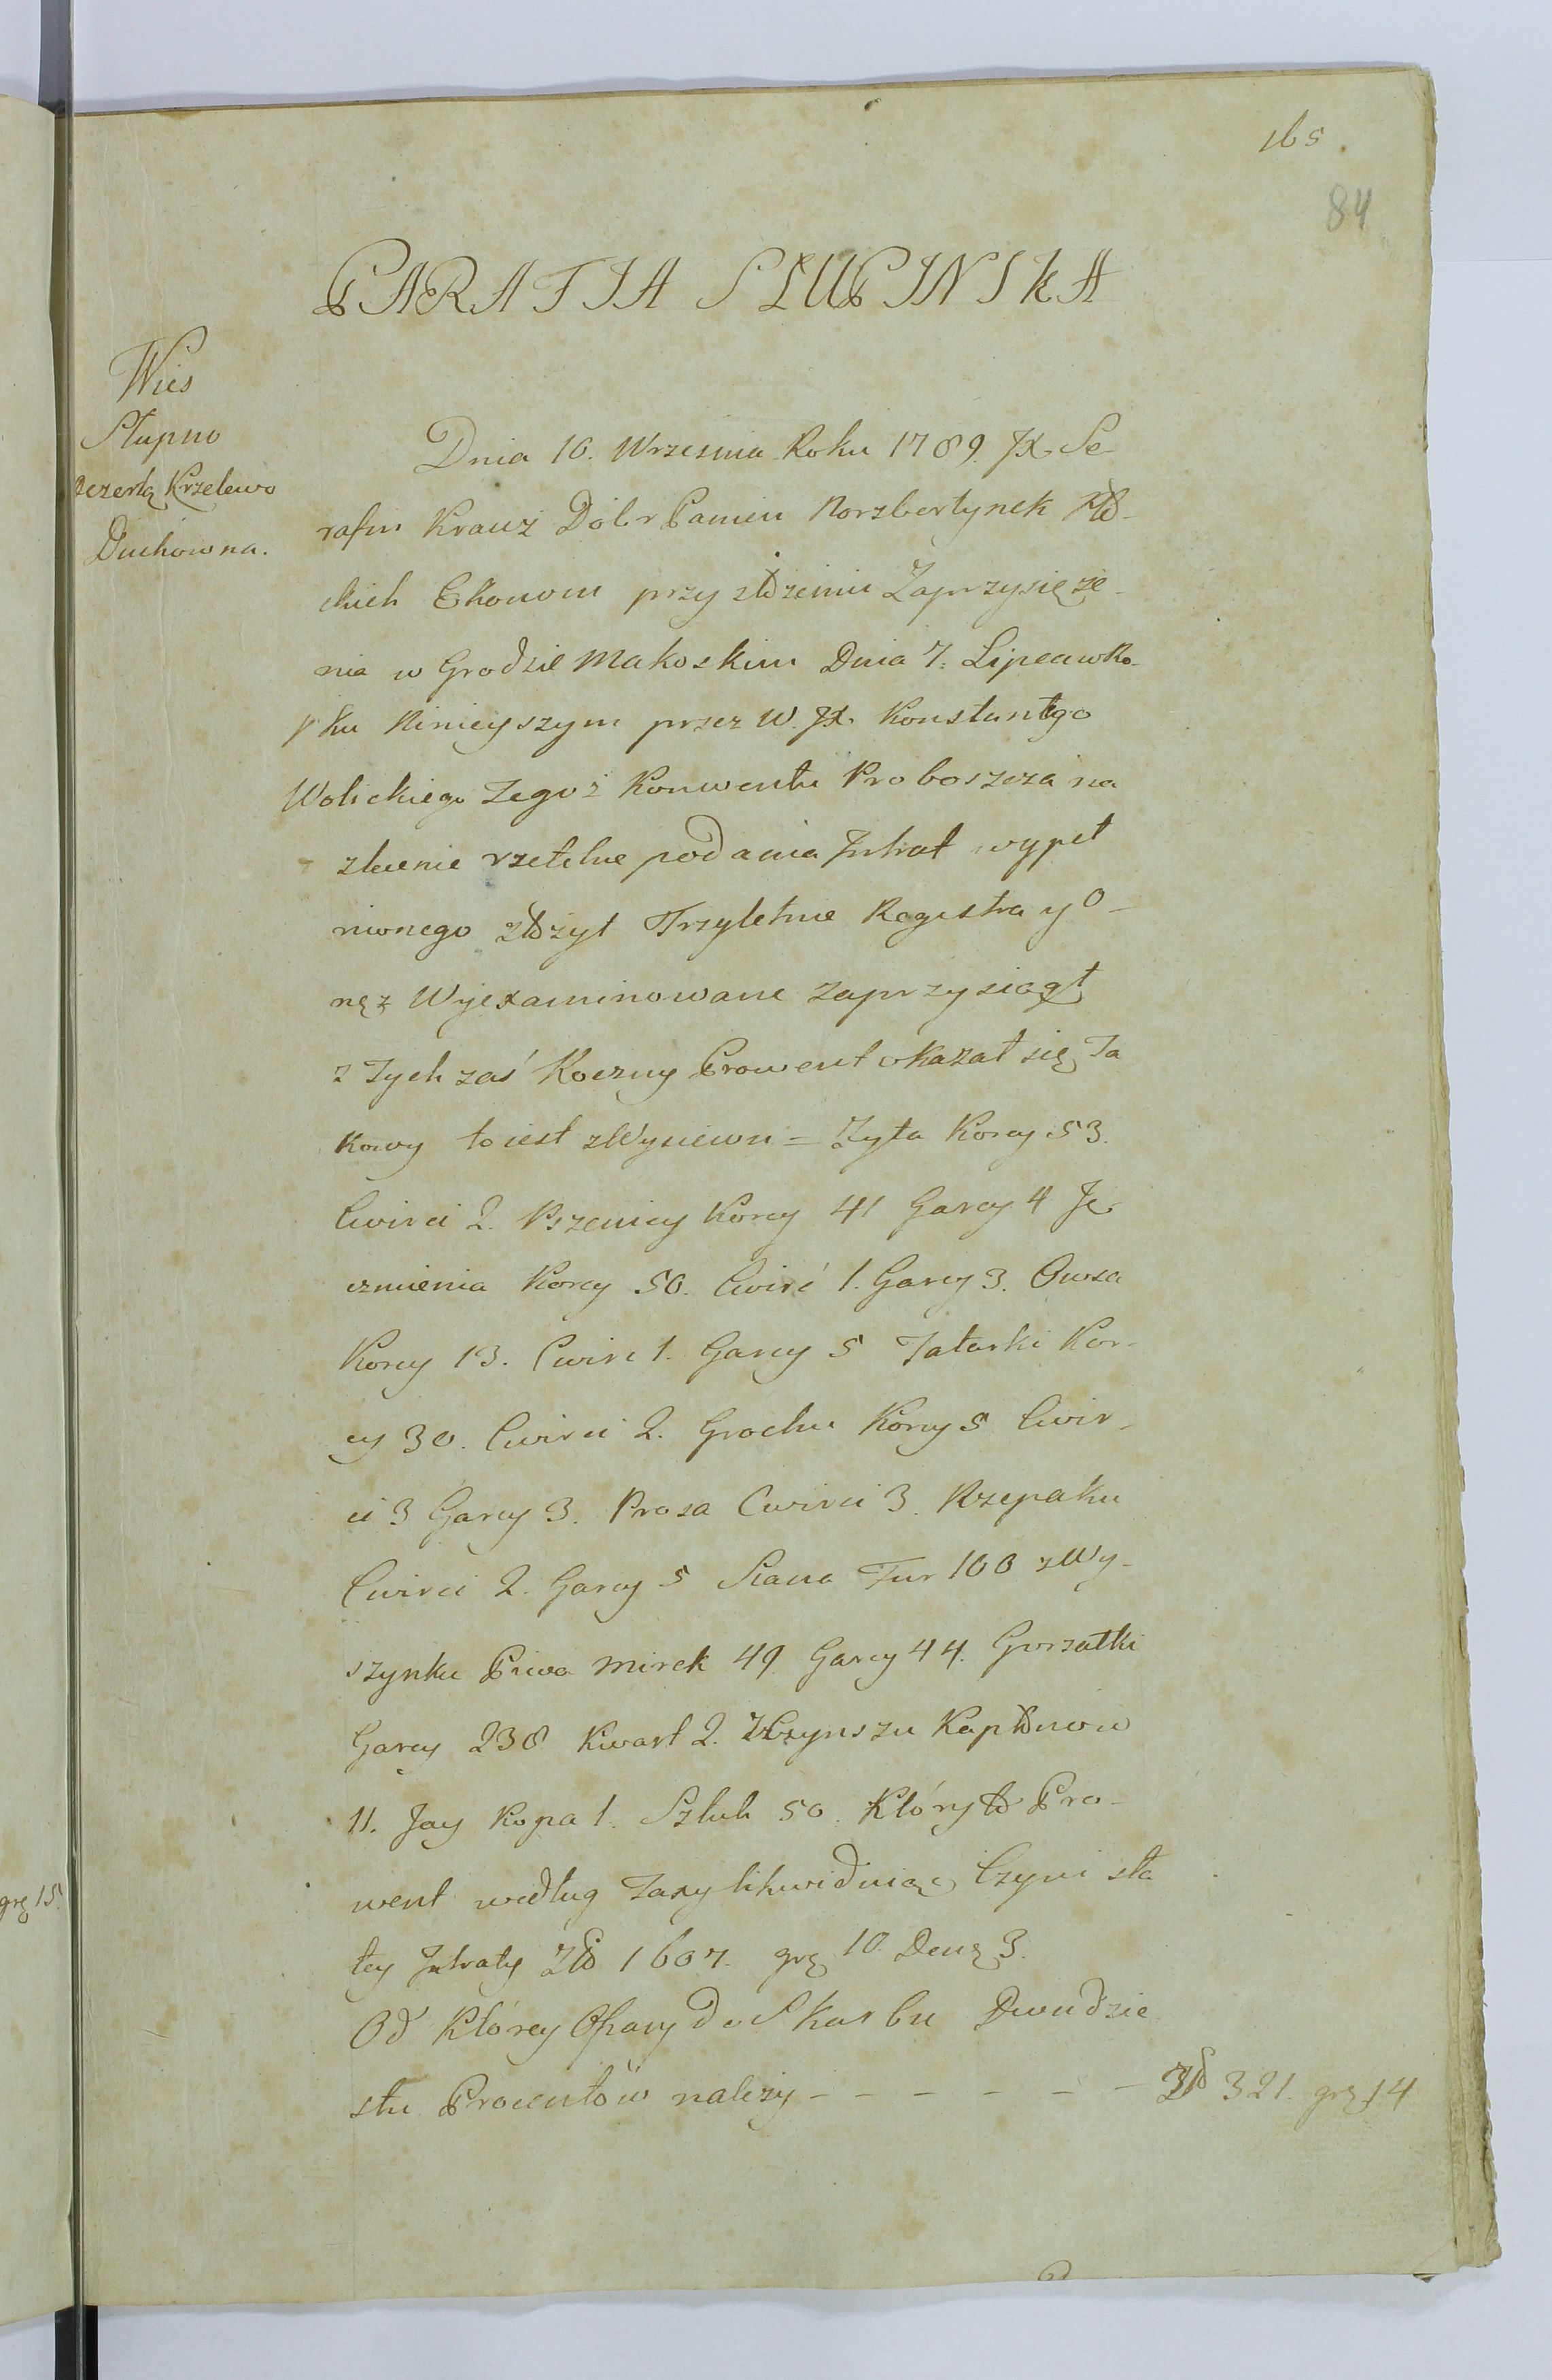 165.
84
PARAFIA SŁUPINSKA
Wies
Słupno
Dezertą Krzelewo
Duchowna.
Dnia 10. Wrzesnia Roku 1789. JX. Se-
rafin Krauz Dóbr Panien Norzbertynek Płło-
ckich Ekonom przy złożeniu Zaprzysięże-
nia w Grodzie Makoskim Dnia 7. Lipca w Ro-
ku Ninieyszym przez W. JX. Konstantego
Wolickiego Tegoż Konwentu Proboszcza na
zlecenie rzetelne podania Intrat wypeł
nionego złożył Trzyletnie Regestra y o-
neż Wyexaminowane zaprzysiągł
z Tych zaś Roczny Prowent okazał się Ta
kowy to iest z Wysiewu = Zyta Korcy 53.
Cwirci 2. Pszenicy Korcy 41 Garcy 4 Ję-
czmienia Korcy 50. Cwirć 1. Garcy 3. Owsa
Korcy 13. Cwirc 1. Garcy 5 Tatarki Kor-
cy 30. Cwirci 2. Grochu Korcy 5 Cwir-
ci 3 Garcy 3. Prosa Cwirci 3. Rzepaku
Cwirci 2. Garcy 5 Siana Fur 100 z Wy-
szynku Piwa Mirek 49. Garcy 44. Gorzałki
Garcy 238 Kwart 2. Z Czynszu Kapłonow
11. Jay Kopa 1. Sztuk 50. Który to Pro-
went według Taxy likwiduiąc Czyni sta
łey Intraty Złło 1607. grę 10 Denę 3.
Od Którey Ofiary do Skarbu Dwudzie
stu Procentów należy - - - - - - Złł 321. grę 14
grę 15.